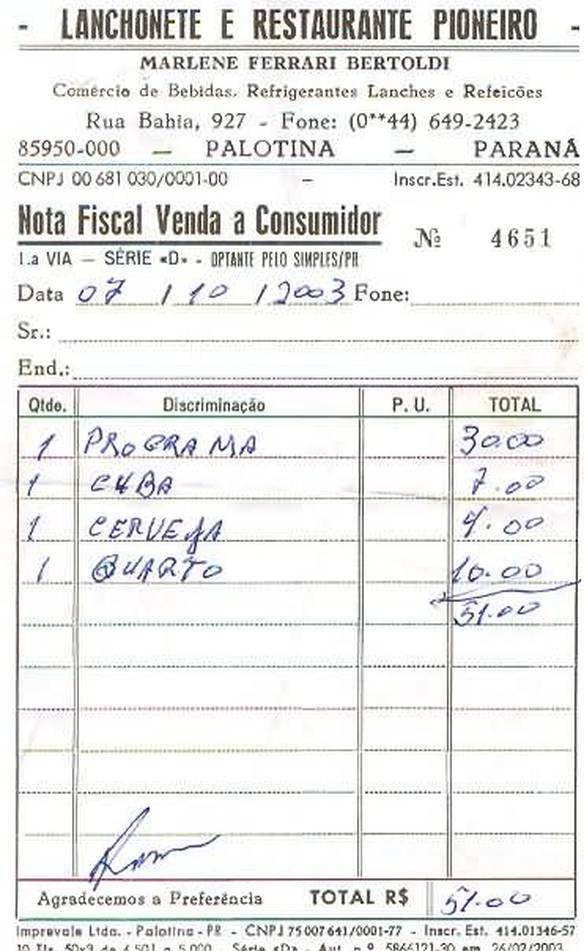 - LANCHONETE E RESTAURANTE PIONEIRO -
MARLENE FERRARI BERTOLDI
Comércio de Bebidas, Refrigerantes Lanches e Refeicões
Rua Bahia, 927 - Fone: (0**44) 649-2423
85950-000 — PALOTINA — PARANÁ
CNPJ 00 681 030/0001-00 - Inscr.Est. 414.02343-68
Nota Fiscal Venda a Consumidor
Nº 4651
1.a VIA — SÉRIE «D» - OPTANTE PELO SIMPLES/PR
Data 07 / 10 / 2003 Fone:
Sr.:
End.:
Qtde. Discriminação P. U. TOTAL
1 PROGRAMA 30.00
1 CUBA 7.00
1 CERVEJA 4.00
1 QUARTO 10.00
51.00
Agradecemos a Preferência TOTAL R$ 51.00
Imprevale Ltda. - Palotina - PR - CNPJ 75 007 641/0001-77 - Inscr. Est. 414.01346-57
10 Tls. 50x3 de 4.501 a 5.000 - Série «D» - Aut. n.º 5866121-30 em 26/02/2003